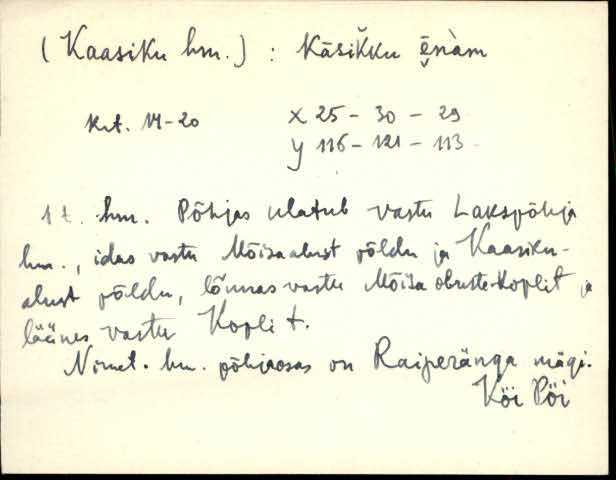 (Kaasiku hm.) : Kāsik̆ku ēnàm
Krt. 14-20 X 25 - 30 - 29
y 116 - 121 - 113
1 t. hm. Põhjas ulatub vastu Lakspõhja
hm., idas vastu Mõisaalust põldu ja Kaasiku-
alust põldu, lõunas vastu Mõisa obuste-koplit ja
läänes vastu Koplit.
Nimet. hm. põhjaosas on Raiperänga mägi.
Köi Pöi